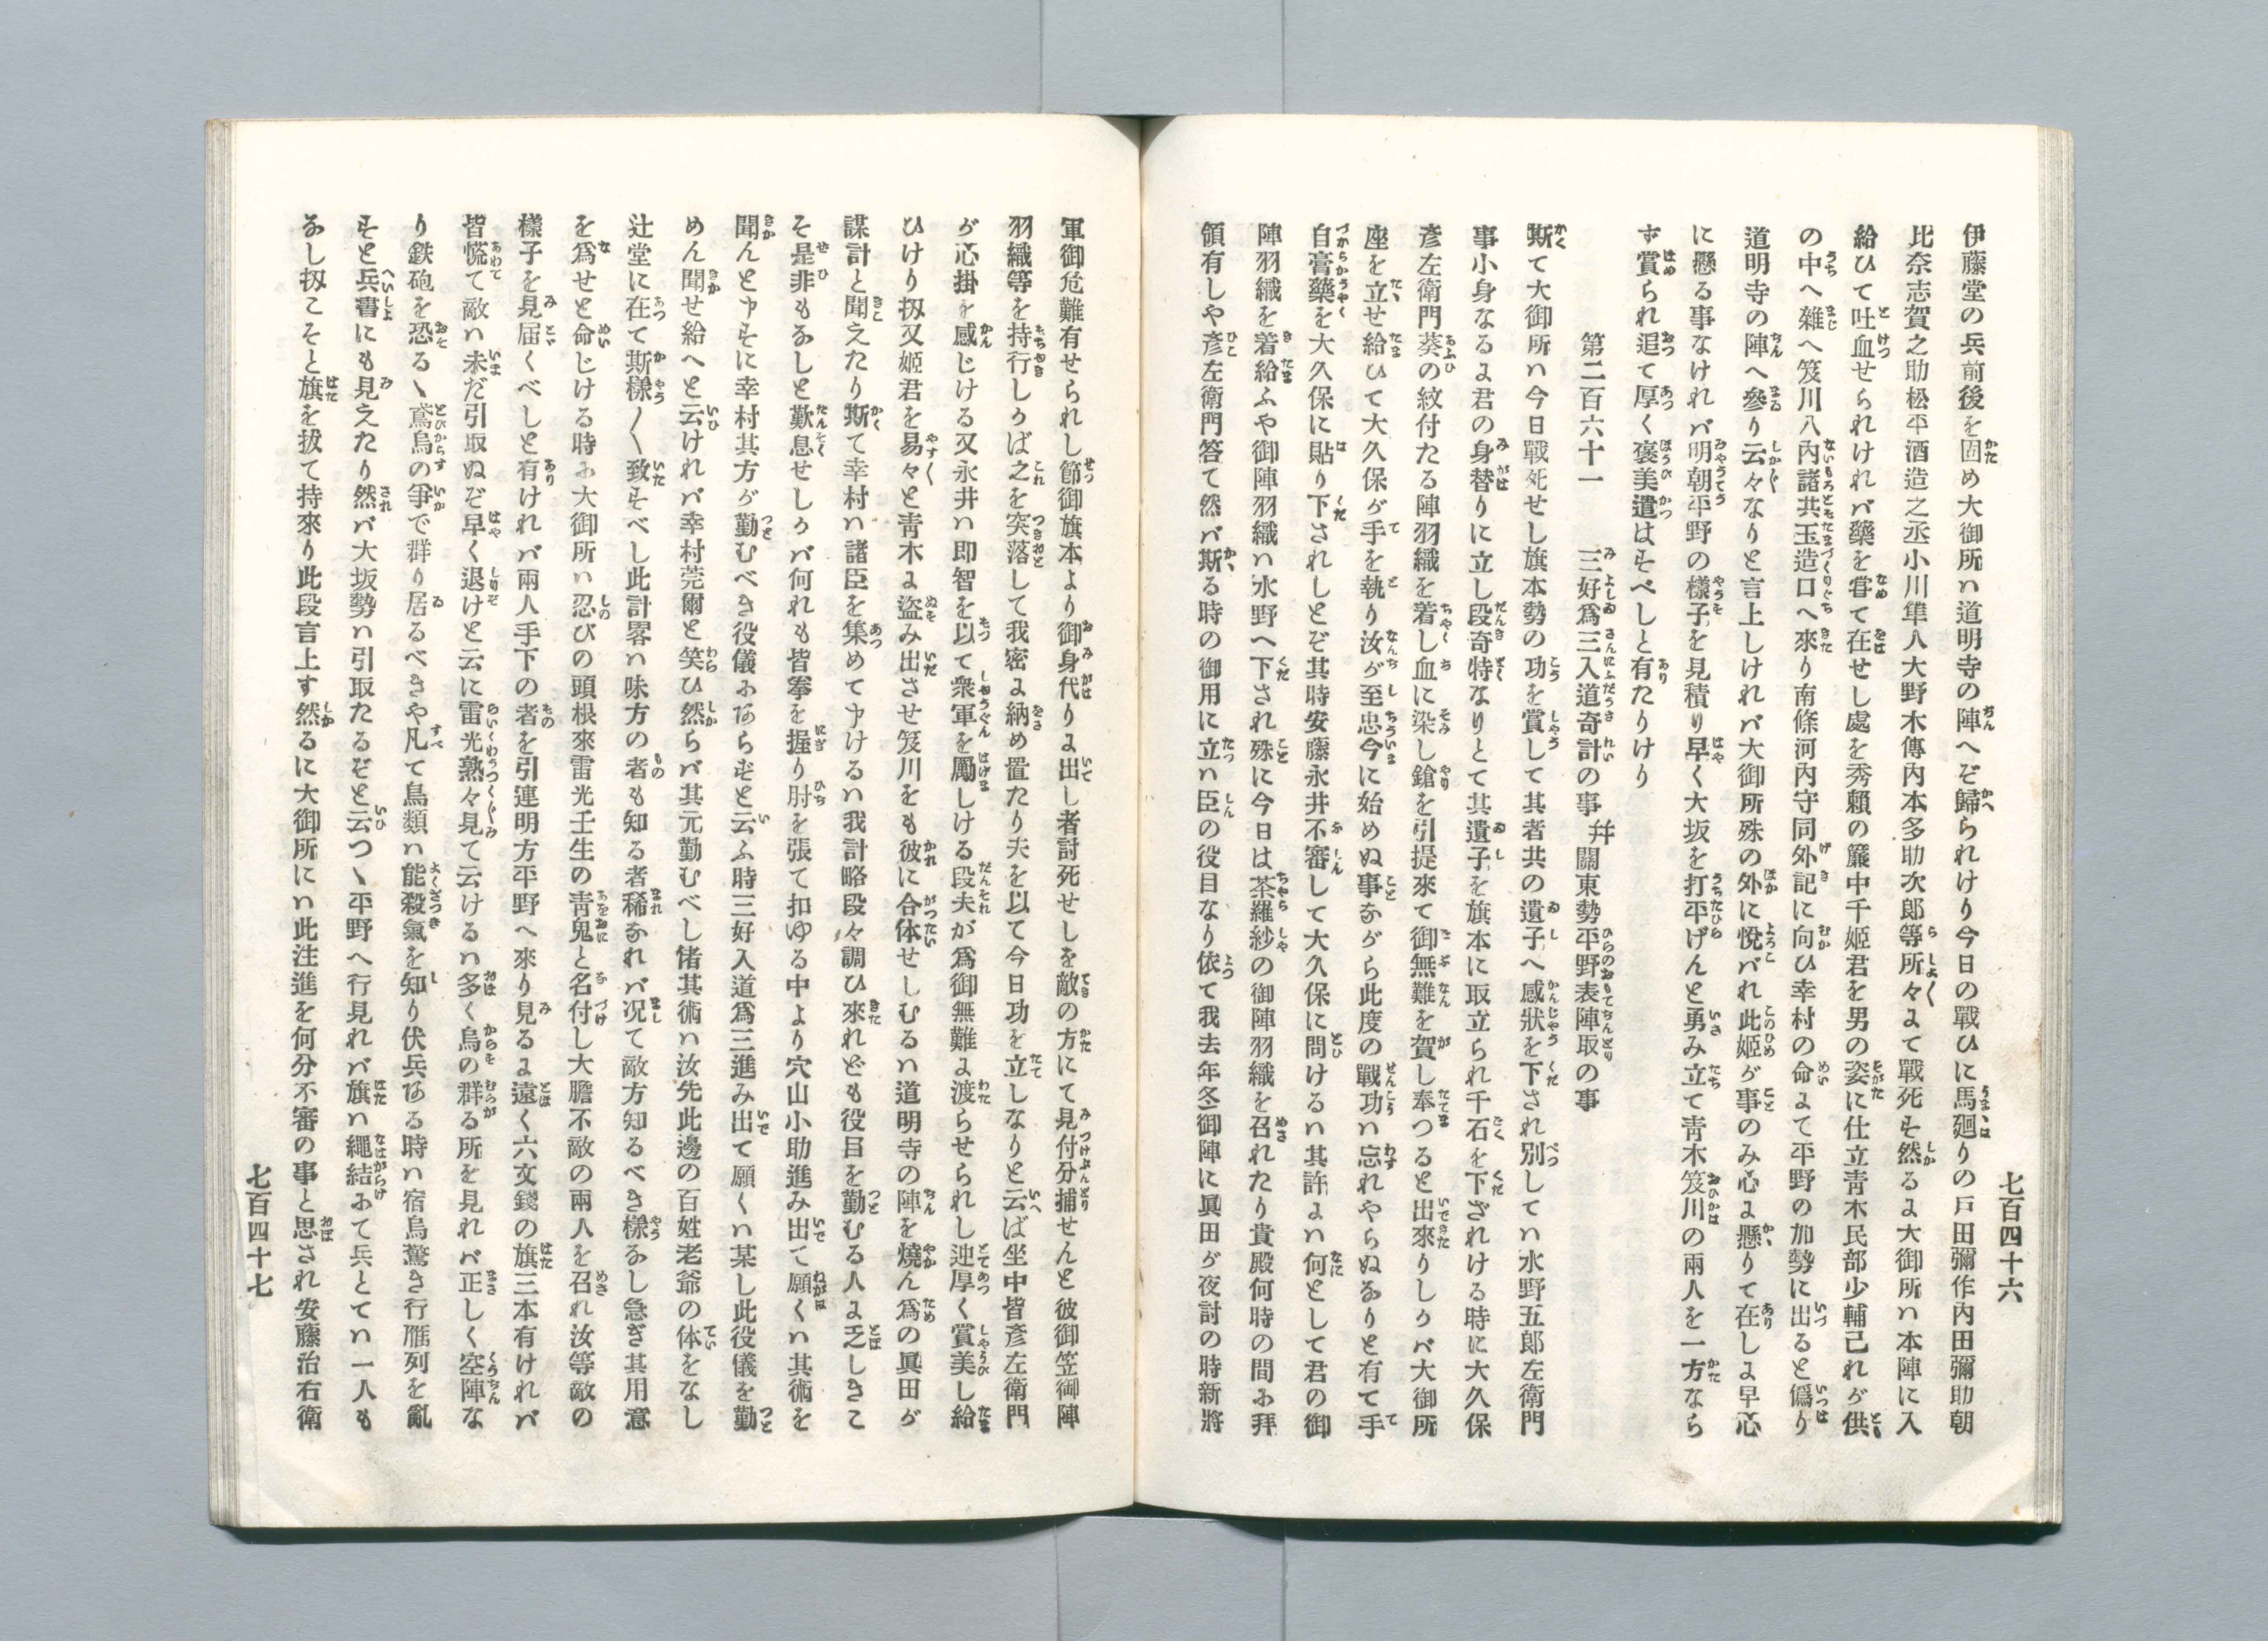 七百四十六
伊藤堂の兵前後を固め大御所ハ道明寺の陣へぞ歸られけり今日の戰ひに馬廻りの戸田彌作内田彌助朝
比奈志賀之助松平酒造之丞小川隼人大野木傳内本多助次郎等所々よて戰死そ然るよ大御所ハ本陣に入
給ひて吐血せられけれバ藥を甞て在せし處を秀頼の簾中千姬君を男の姿に仕立靑木民部少輔己れが供
の中へ雜へ笈川八内諸共玉造口へ來り南條河内守同外記に向ひ幸村の命よて平野の加勢に出ると僞り
道明寺の陣へ參り云々なりと言上しけれバ大御所殊の外に悅バれ此姬が事のみ心よ懸りて在しよ早心
に懸る事なけれバ明朝平野の樣子を見積り早く大坂を打平げんと勇み立て靑木笈川の兩人を一方なら
ず賞られ追て厚く褒美遣はそべしと有たりけり
第二百六十一　三好爲三入道奇計の事　幷關東勢平野表陣取の事
斯て大御所ハ今日戰死せし旗本勢の功を賞して其者共の遺子へ感狀を下され別してハ水野五郎左衛門
事小身なるよ君の身替りに立し段奇特なりとて其遺子を旗本に取立られ千石を下されける時に大久保
彦左衛門葵の紋付たる陣羽織を着し血に染し鎗を引提來て御無難を賀し奉つると出來りしかバ大御所
座を立せ給ひて大久保が手を執り汝が至忠今に始めぬ事ながら此度の戰功ハ忘れやらぬなりと有て手
自膏藥を大久保に貼り下されしとぞ其時安藤永井不審して大久保に問けるハ其許よハ何として君の御
陣羽織を着給ふや御陣羽織ハ水野へ下され殊に今日は茶羅紗の御陣羽織を召れたり貴殿何時の間に拜
領有しや彦左衛門答て然バ斯る時の御用に立ハ臣の役目なり依て我去年冬御陣に眞田が夜討の時新將
軍御危難有せられし節御旗本より御身代りよ出し者討死せしを敵の方にて見付分捕せんと彼御笠御陣
羽織等を持行しかば之を突落して我密よ納め置たり夫を以て今日功を立しなりと云ば坐中皆彦左衛門
が心掛を感じける又永井ハ即智を以て衆軍を勵しける段夫が爲御無難よ渡らせられし迚厚く賞美し給
ひけり扨又姬君を易々と靑木よ盜み出させ笈川をも彼に合体せしむるハ道明寺の陣を燒ん爲の眞田が
謀計と聞えたり斯て幸村ハ諸臣を集めて申けるハ我計略段々調ひ來れども役目を勤むる人よ乏しきこ
そ是非もなしと歎息せしかバ何れも皆拳を握り肘を張て扣ゆる中より穴山小助進み出て願くハ其術を
聞んと申そに幸村其方が勤むべき役儀にあらずと云ふ時三好入道爲三進み出て願くハ某し此役儀を勤
めん聞せ給へと云けれバ幸村莞爾と笑ひ然らバ其元勤むべし偖其術ハ汝先此邊の百姓老爺の体をなし
辻堂に在て斯樣〱致そべし此計畧ハ味方の者も知る者稀なれバ况て敵方知るべき樣なし急ぎ其用意
を爲せと命じける時に大御所ハ忍びの頭根來雷光壬生の靑鬼と名付し大膽不敵の兩人を召れ汝等敵の
樣子を見届くべしと有けれバ兩人手下の者を引連明方平野へ來り見るよ遠く六文錢の旗三本有けれバ
皆慌て敵ハ未だ引取ぬぞ早く退けと云に雷光熟々見て云けるハ多く烏の群る所を見れバ正しく空陣な
り鉄砲を恐るゝ鳶烏の爭で群り居るべきや凡て鳥類ハ能殺氣を知り伏兵ある時ハ宿鳥驚き行雁列を亂
そと兵書にも見えたり然れバ大坂勢ハ引取たるぞと云つゝ平野へ行見れバ旗ハ繩結にて兵とてハ一人も
なし扨こそと旗を拔て持來り此段言上す然るに大御所にハ此注進を何分不審の事と思され安藤治右衛
七百四十七